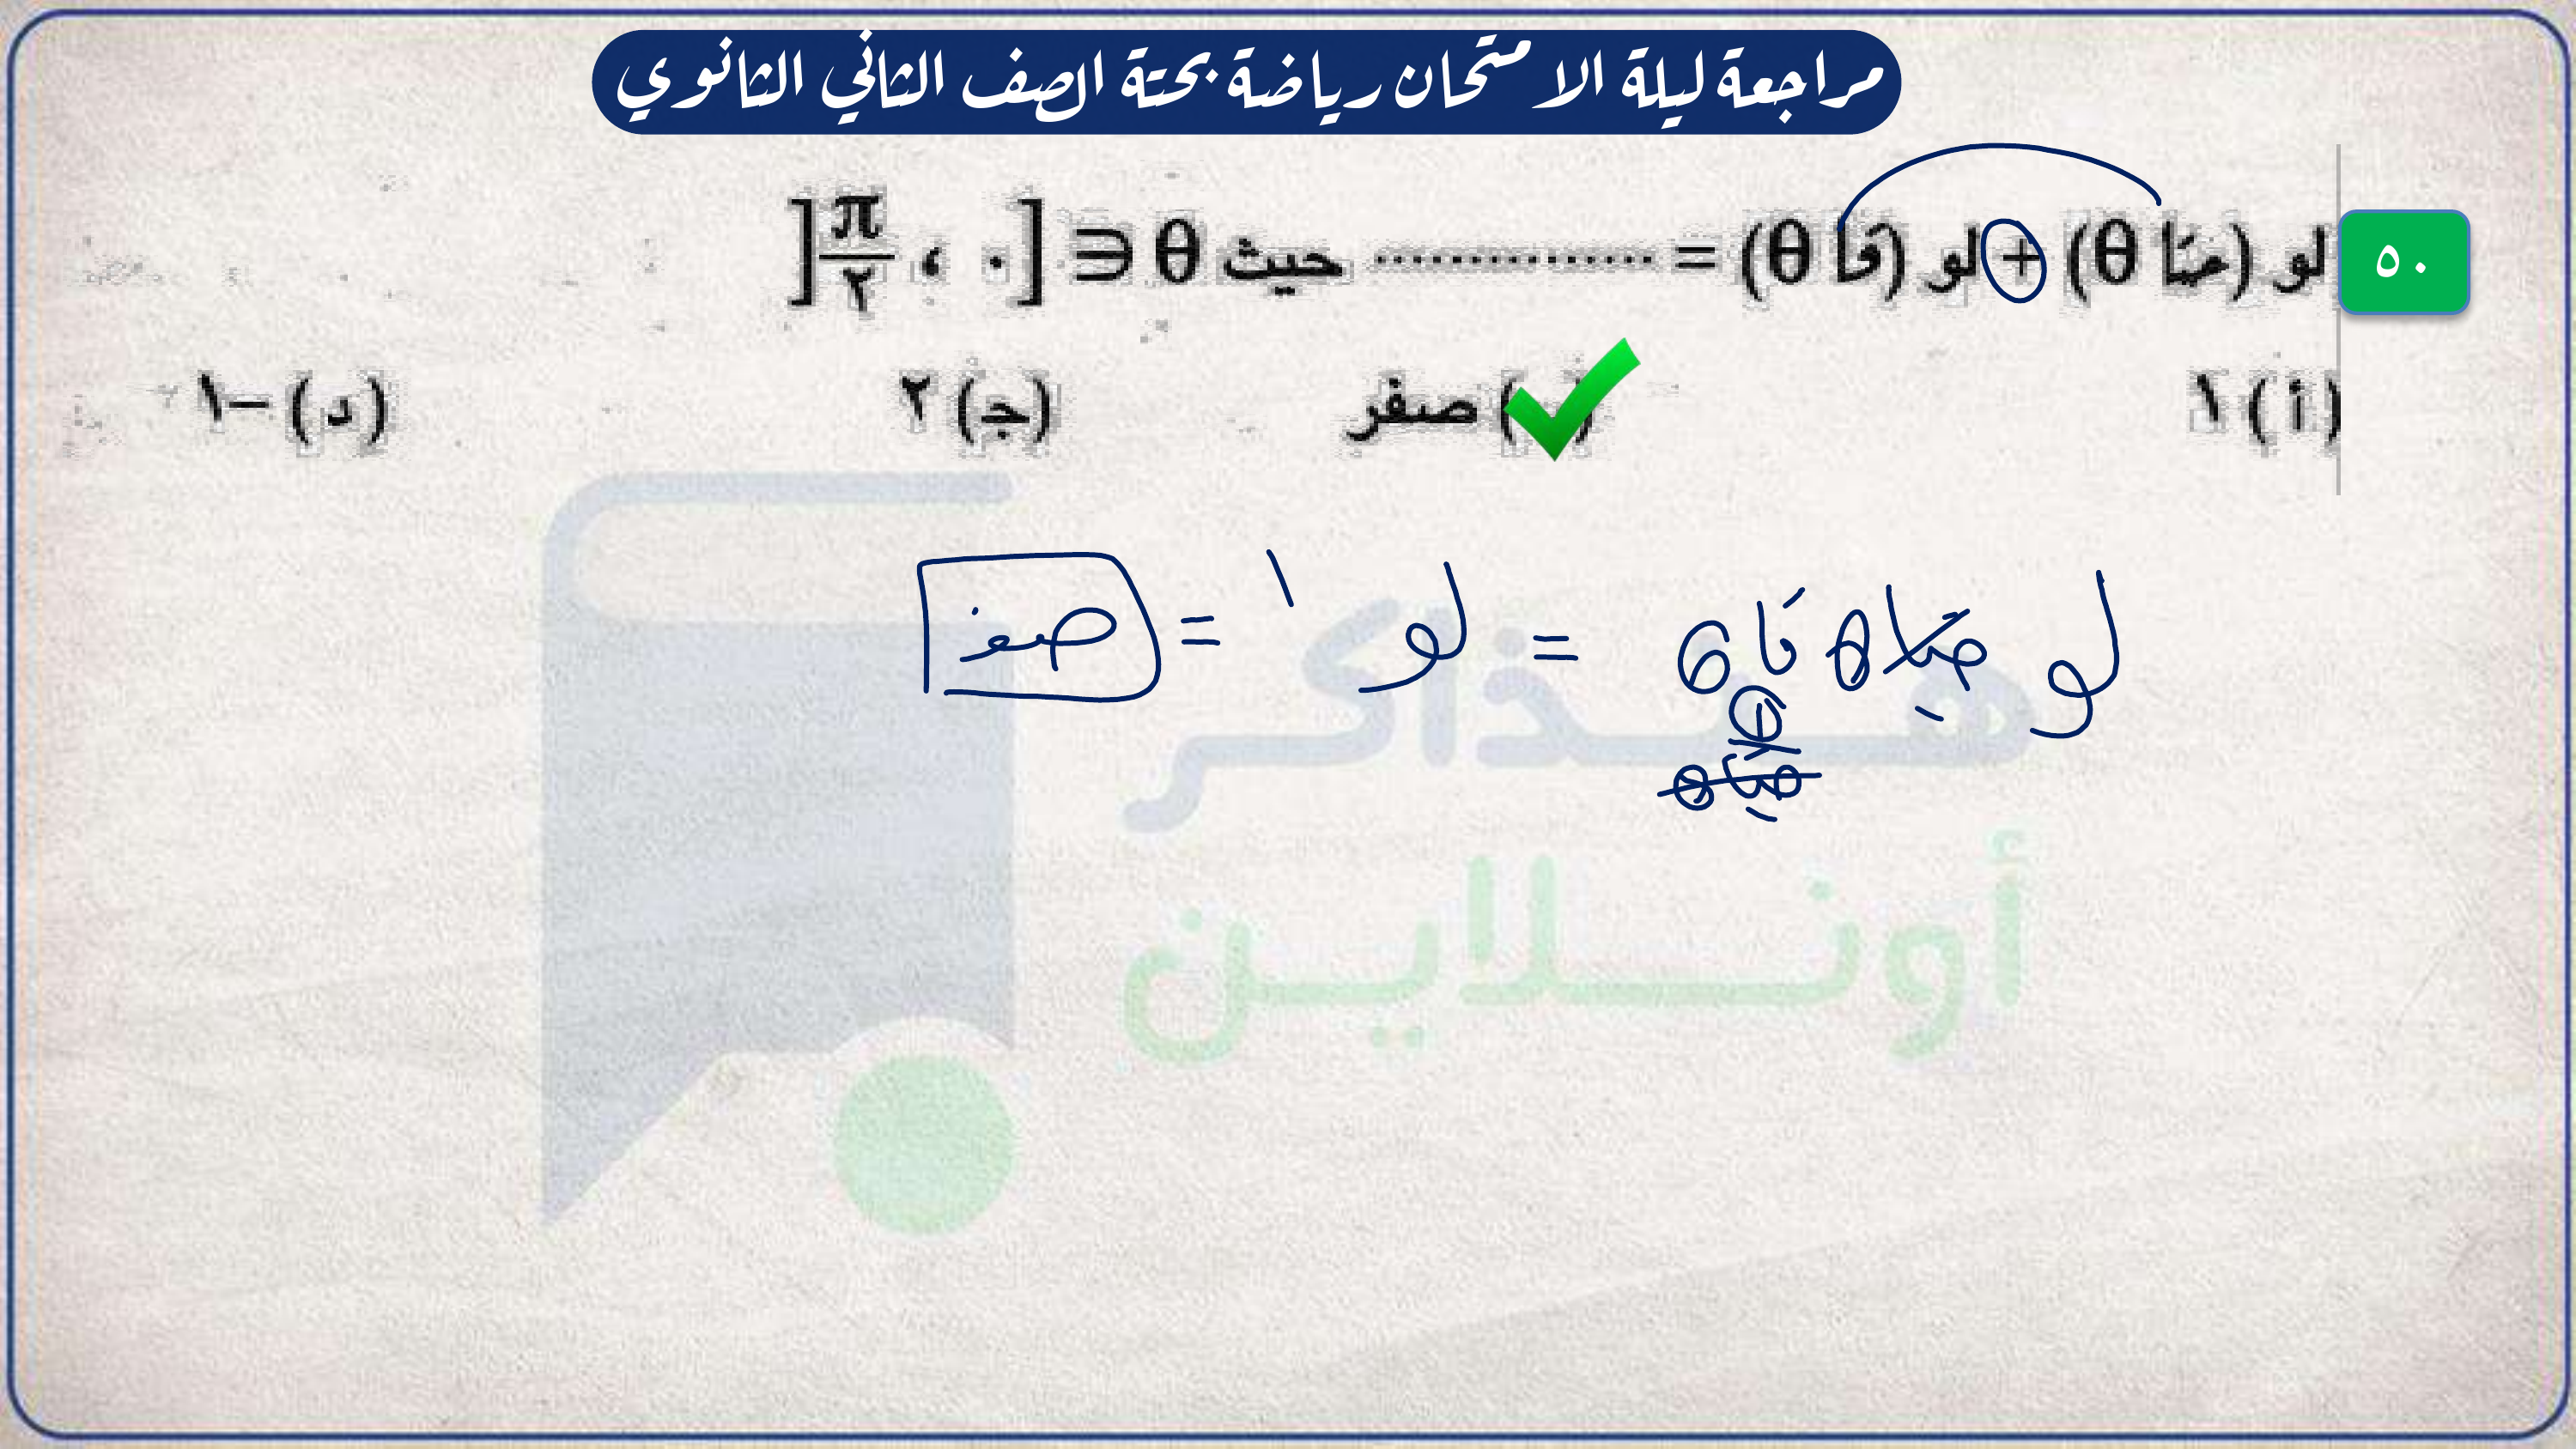 مراجعة ليلة الامتحان رياضة بحتة الصف الثاني الثانوي
٥٠ لو (حتا θ) + لو (قا θ) = ............... حيث θ ∈ ]٠ ، π/٢[
(أ) ١ ( ) صفر (جـ) ٢ (د) –١
لو حتا θ قا θ = لو ١ = صفر
١
حتا θ
هـذاكر
أونلاين